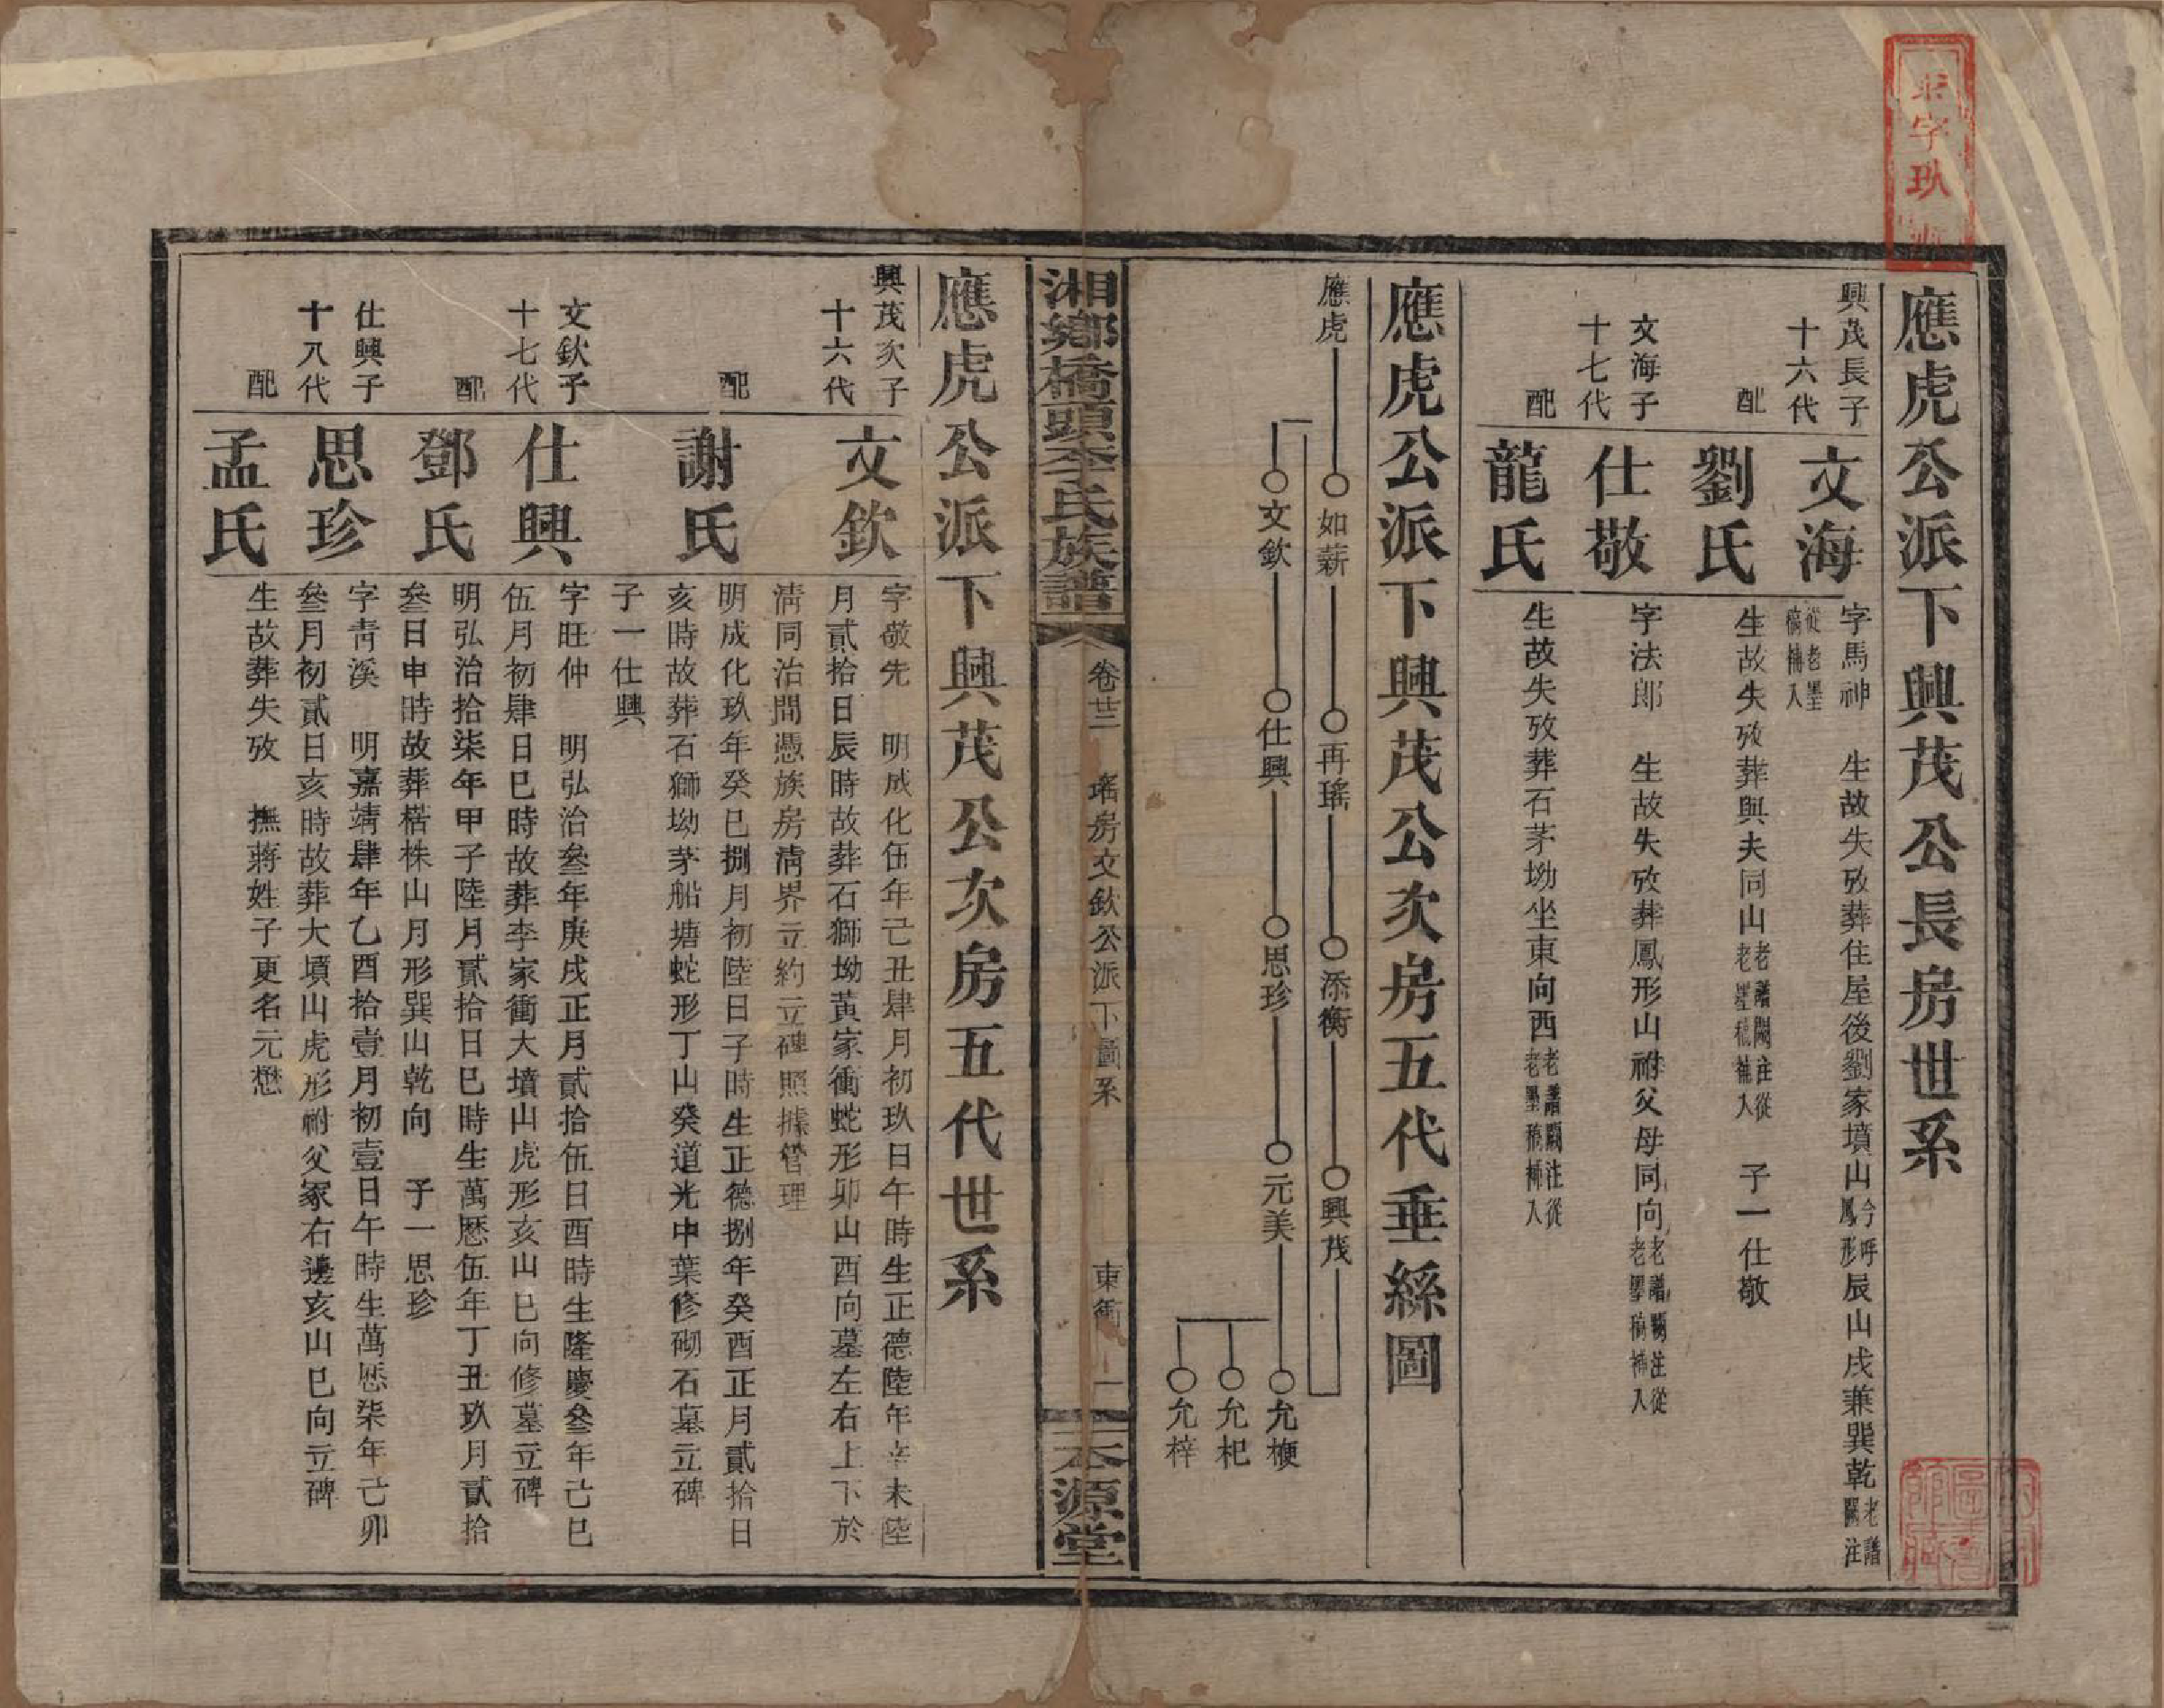 字玖
應虎公派下興茂公長房世系
興茂長子
十六代
文海
字馬神　生故失攷葬住屋後劉家墳山今呼鳳形辰山戌兼巽乾老譜闕注
從老墨稿補入
配
劉氏
生故失攷葬與夫同山老譜闕注從老墨稿補入　子一仕敬
文海子
十七代
仕敬
字法郎　生故失攷葬鳳形山祔父母同向老譜闕注從老墨稿補入
配
龍氏
生故失攷葬石茅坳坐東向西老譜闕注從老墨稿補入
應虎公派下興茂公次房五代垂絲圖
應虎
如薪
再瑤
添衡
興茂
文欽
仕興
思珍
元美
允梗
允杞
允梓
湘鄉橋頭李氏族譜
卷廿二
瑤房文欽公派下圖系
東衝
一
本源堂
應虎公派下興茂公次房五代世系
興茂次子
十六代
文欽
字敬先　明成化伍年己丑肆月初玖日午時生正德陸年辛未陸
月貳拾日辰時故葬石獅坳黃家衝蛇形卯山酉向墓左右上下於
清同治間憑族房清界立約立碑照據管理
配
謝氏
明成化玖年癸巳捌月初陸日子時生正德捌年癸酉正月貳拾日
亥時故葬石獅坳茅船塘蛇形丁山癸道光中葉修砌石墓立碑
子一仕興
文欽子
十七代
仕興
字旺仲　明弘治叄年庚戌正月貳拾伍日酉時生隆慶叄年己巳
伍月初肆日巳時故葬李家衝大墳山虎形亥山巳向修墓立碑
配
鄧氏
明弘治拾柒年甲子陸月貳拾日巳時生萬曆伍年丁丑玖月貳拾
叄日申時故葬楛株山月形巽山乾向　子一思珍
仕興子
十八代
思珍
字青溪　明嘉靖肆年乙酉拾壹月初壹日午時生萬曆柒年己卯
叄月初貳日亥時故葬大墳山虎形祔父冢右邊亥山巳向立碑
配
孟氏
生故葬失攷　撫蔣姓子更名元懋